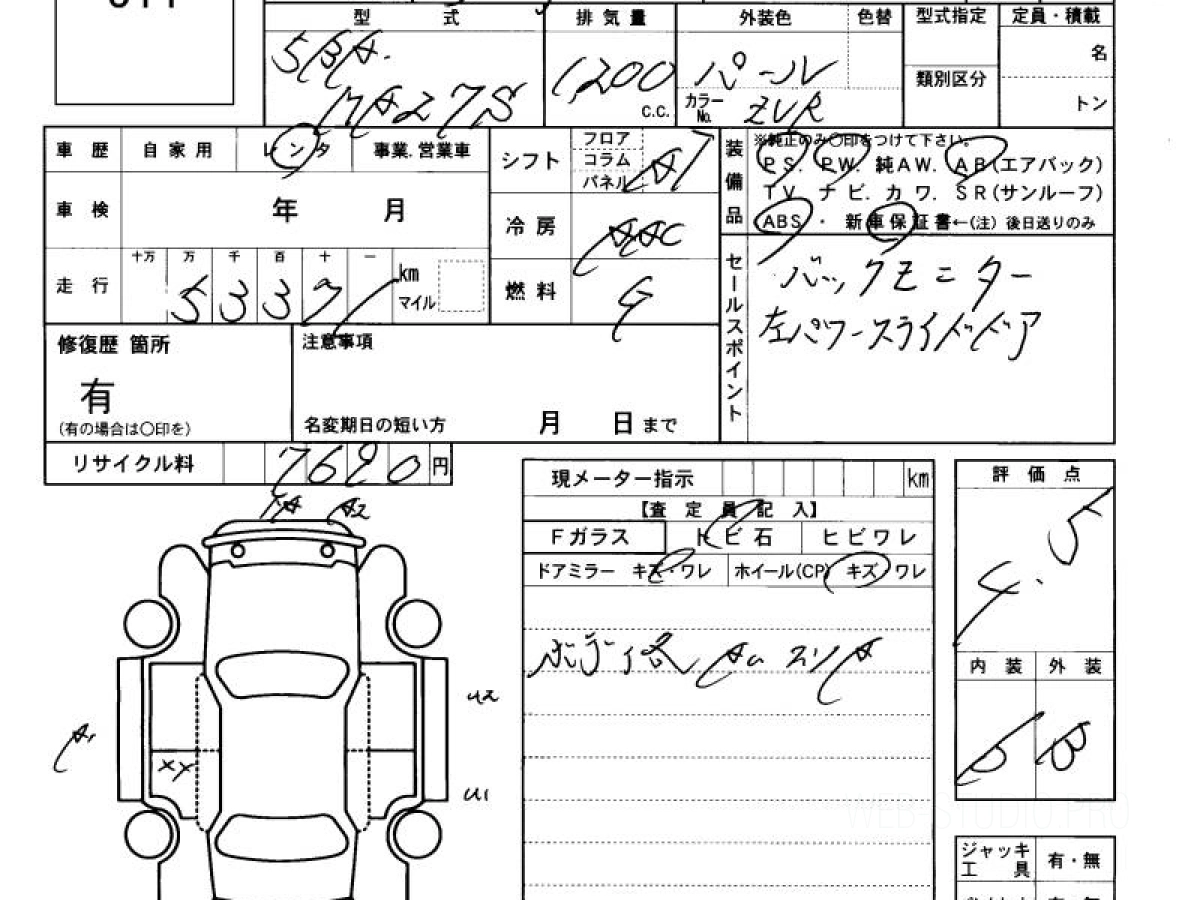 型 式 排 気 量 外装色 色替 型式指定 定員・積載
5BA. 名
MA27S 1,200 c.c. パール 類別区分
カラーNo. ZVR トン
車 歴 自 家 用 レ ン タ 事業．営業車
シフト フロア コラム パネル AT
装備品 ※純正のみ〇印をつけて下さい。
PS. PW. 純AW. AB(エアバック)
TV ナビ. カワ. SR(サンルーフ)
ABS ・ 新車保証書←(注) 後日送りのみ
車 検 年 月
冷 房 AAC
走 行 十万 万 千 百 十 一
5 3 3 7 km マイル
燃 料 G
セールスポイント バックモニター
左パワースライドドア
修復歴 箇所
有
(有の場合は〇印を)
注意事項
名変期日の短い方 月 日 まで
リサイクル料 7690 円
現メーター指示 km
【査 定 員 記 入】
Fガラス トビ石 ヒビワレ
ドアミラー キズ・ワレ ホイール(CP) キズ ワレ
A2
U2
A1
XX
U1
評 価 点
4.5
内 装 外 装
B B
ジャッキ
工 具 有・無
WEB-STUDIO.PRO